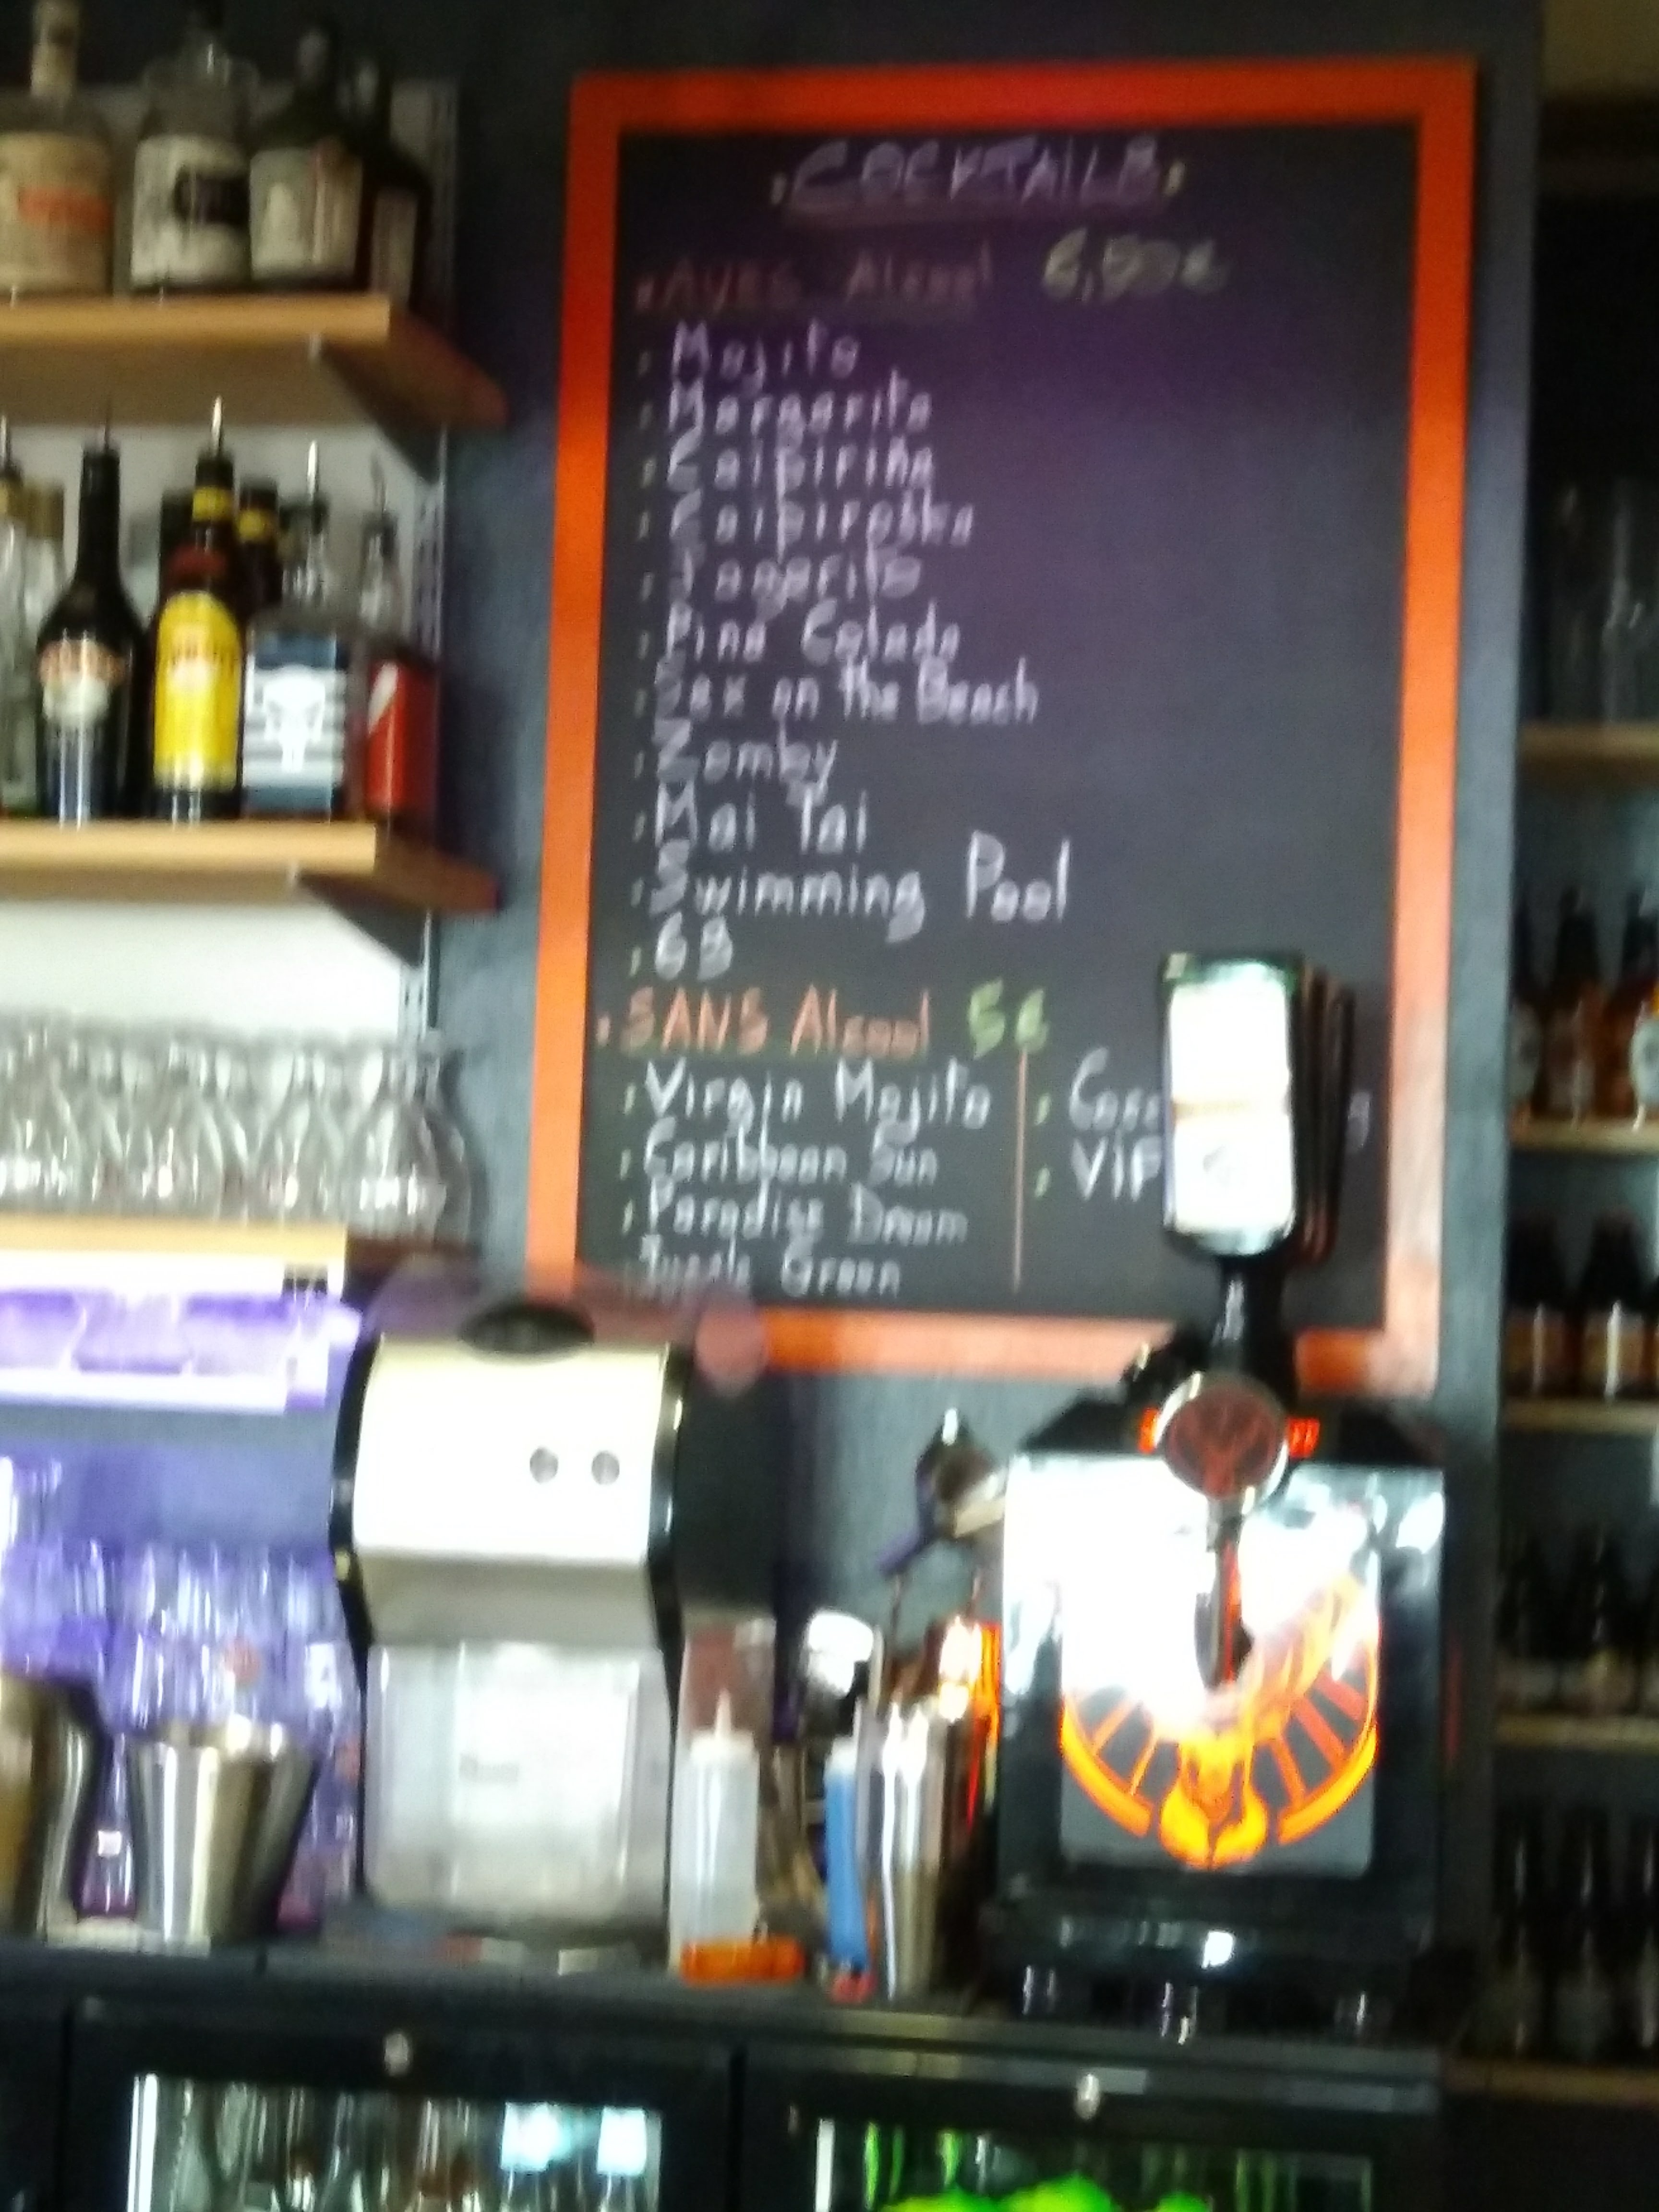 COCKTAILS
AVEC Alcool 6,50€
Mojito
Margarita
Caipirina
Caipiroska
Jagarito
Pina Colada
Sex on the Beach
Zomby
Mai Tai
Swimming Pool
SANS Alcool 5€
Virgin Mojito
Caribbean Sun
Paradise Dream
Green